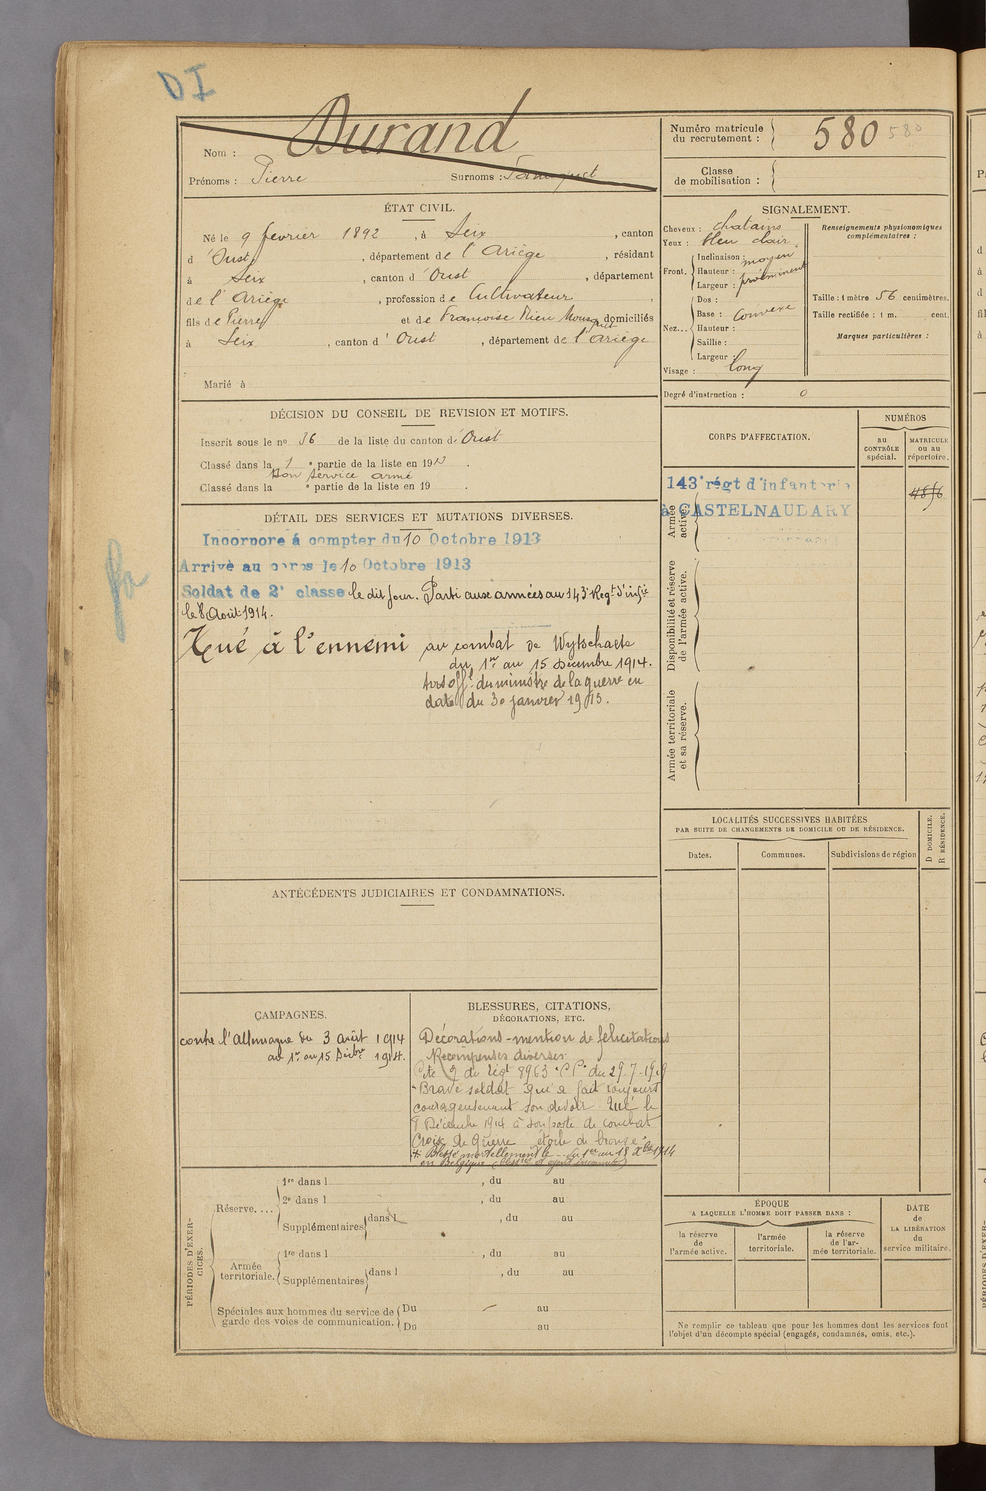 DI
Nom : Durand
Prénoms : Pierre Surnoms :
Numéro matricule du recrutement : 580 580
Classe de mobilisation :
ÉTAT CIVIL.
Né le 9 février 1892, à Seix, canton
d'Oust, département de l'Ariège, résidant
à Seix, canton d'Oust, département
de l'Ariège, profession de Cultivateur,
fils de Pierre et de Françoise Rieu domiciliés
à Seix, canton d'Oust, département de l'Ariège
Marié à
SIGNALEMENT.
Cheveux : chatains
Yeux : bleu clair
Front. Inclinaison : moyen
Hauteur :
Largeur : proéminent
Nez... Dos :
Base : convexe
Hauteur :
Saillie :
Largeur :
Visage : long
Renseignements physionomiques complémentaires :
Taille : 1 mètre 56 centimètres.
Taille rectifiée : 1 m. cent.
Marques particulières :
Degré d'instruction : 0
DÉCISION DU CONSEIL DE REVISION ET MOTIFS.
Inscrit sous le no 36 de la liste du canton d'Oust
Classé dans la 1 e partie de la liste en 1913.
Bon service armé
Classé dans la e partie de la liste en 19 .
DÉTAIL DES SERVICES ET MUTATIONS DIVERSES.
Incorporé à compter du 10 Octobre 1913
Arrivé au corps le 10 Octobre 1913
Soldat de 2e classe le dit jour. Parti aux armées au 143e Régt d'infie
le 8 Août 1914.
Tué à l'ennemi au combat de Wytschaete
du 1er au 15 Décembre 1914.
Avis offel du ministre de la guerre en
date du 30 janvier 1915.
CORPS D'AFFECTATION.
NUMÉROS
au CONTRÔLE spécial.
MATRICULE ou au répertoire.
Armée active.
143e régt d'infanterie
à CASTELNAUDARY
Disponibilité et réserve de l'armée active.
Armée territoriale et sa réserve.
LOCALITÉS SUCCESSIVES HABITÉES
PAR SUITE DE CHANGEMENTS DE DOMICILE OU DE RÉSIDENCE.
Dates. Communes. Subdivisions de région D DOMICILE. R RÉSIDENCE.
ANTÉCÉDENTS JUDICIAIRES ET CONDAMNATIONS.
CAMPAGNES.
contre l'Allemagne du 3 août 1914
au 1er au 15 Décbre 1914.
BLESSURES, CITATIONS,
DÉCORATIONS, ETC.
Décorations - mention de félicitations
Récompenses diverses
Cité à du Régt 8963 "CP" du 29-7-19
"Brave soldat qui a fait toujours
courageusement son devoir. Tué le
Décembre 1914 à son poste de combat
Croix de Guerre étoile de bronze"
Blessé mortellement le du 1er au 15 Xbre 1914
en Belgique
PÉRIODES D'EXERCICES.
Réserve....
1re dans l , du au
2e dans l , du au
Supplémentaires dans l , du au
Armée territoriale.
1re dans l , du au
Supplémentaires dans l , du au
Spéciales aux hommes du service de garde des voies de communication.
Du au
Du au
ÉPOQUE
A LAQUELLE L'HOMME DOIT PASSER DANS :
la réserve de l'armée active.
l'armée territoriale.
la réserve de l'armée territoriale.
DATE de LA LIBÉRATION du service militaire.
Ne remplir ce tableau que pour les hommes dont les services font
l'objet d'un décompte spécial (engagés, condamnés, omis, etc.).